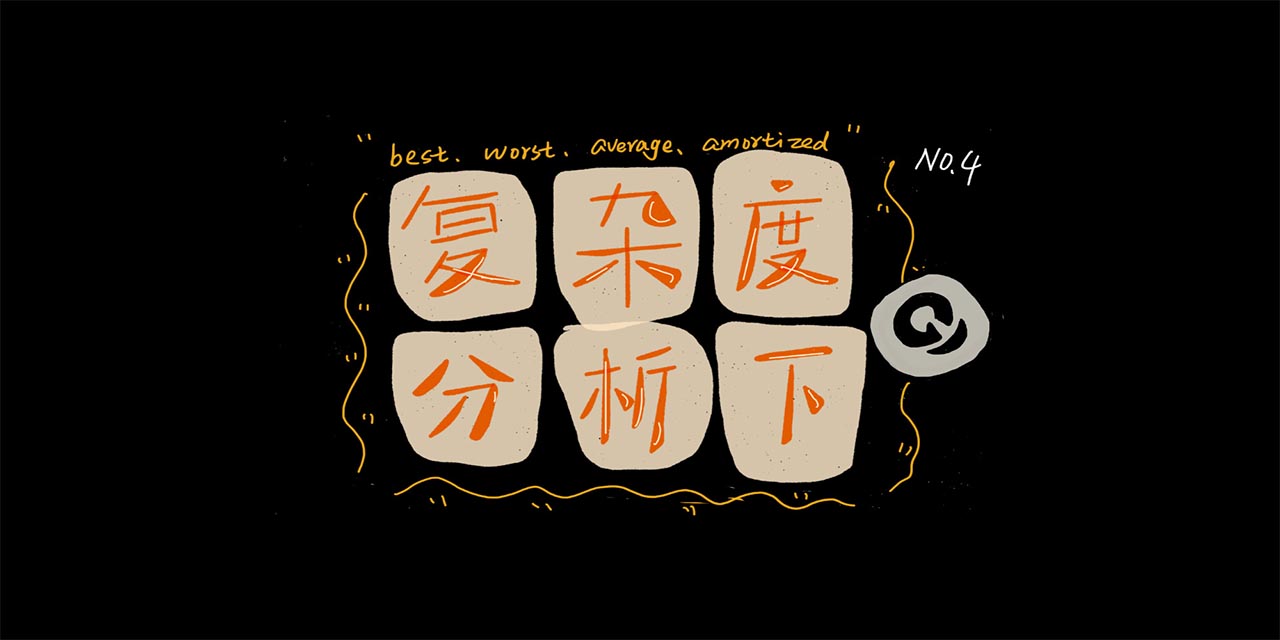 "best. worst. average. amortized"
NO.4
复杂度
分析下